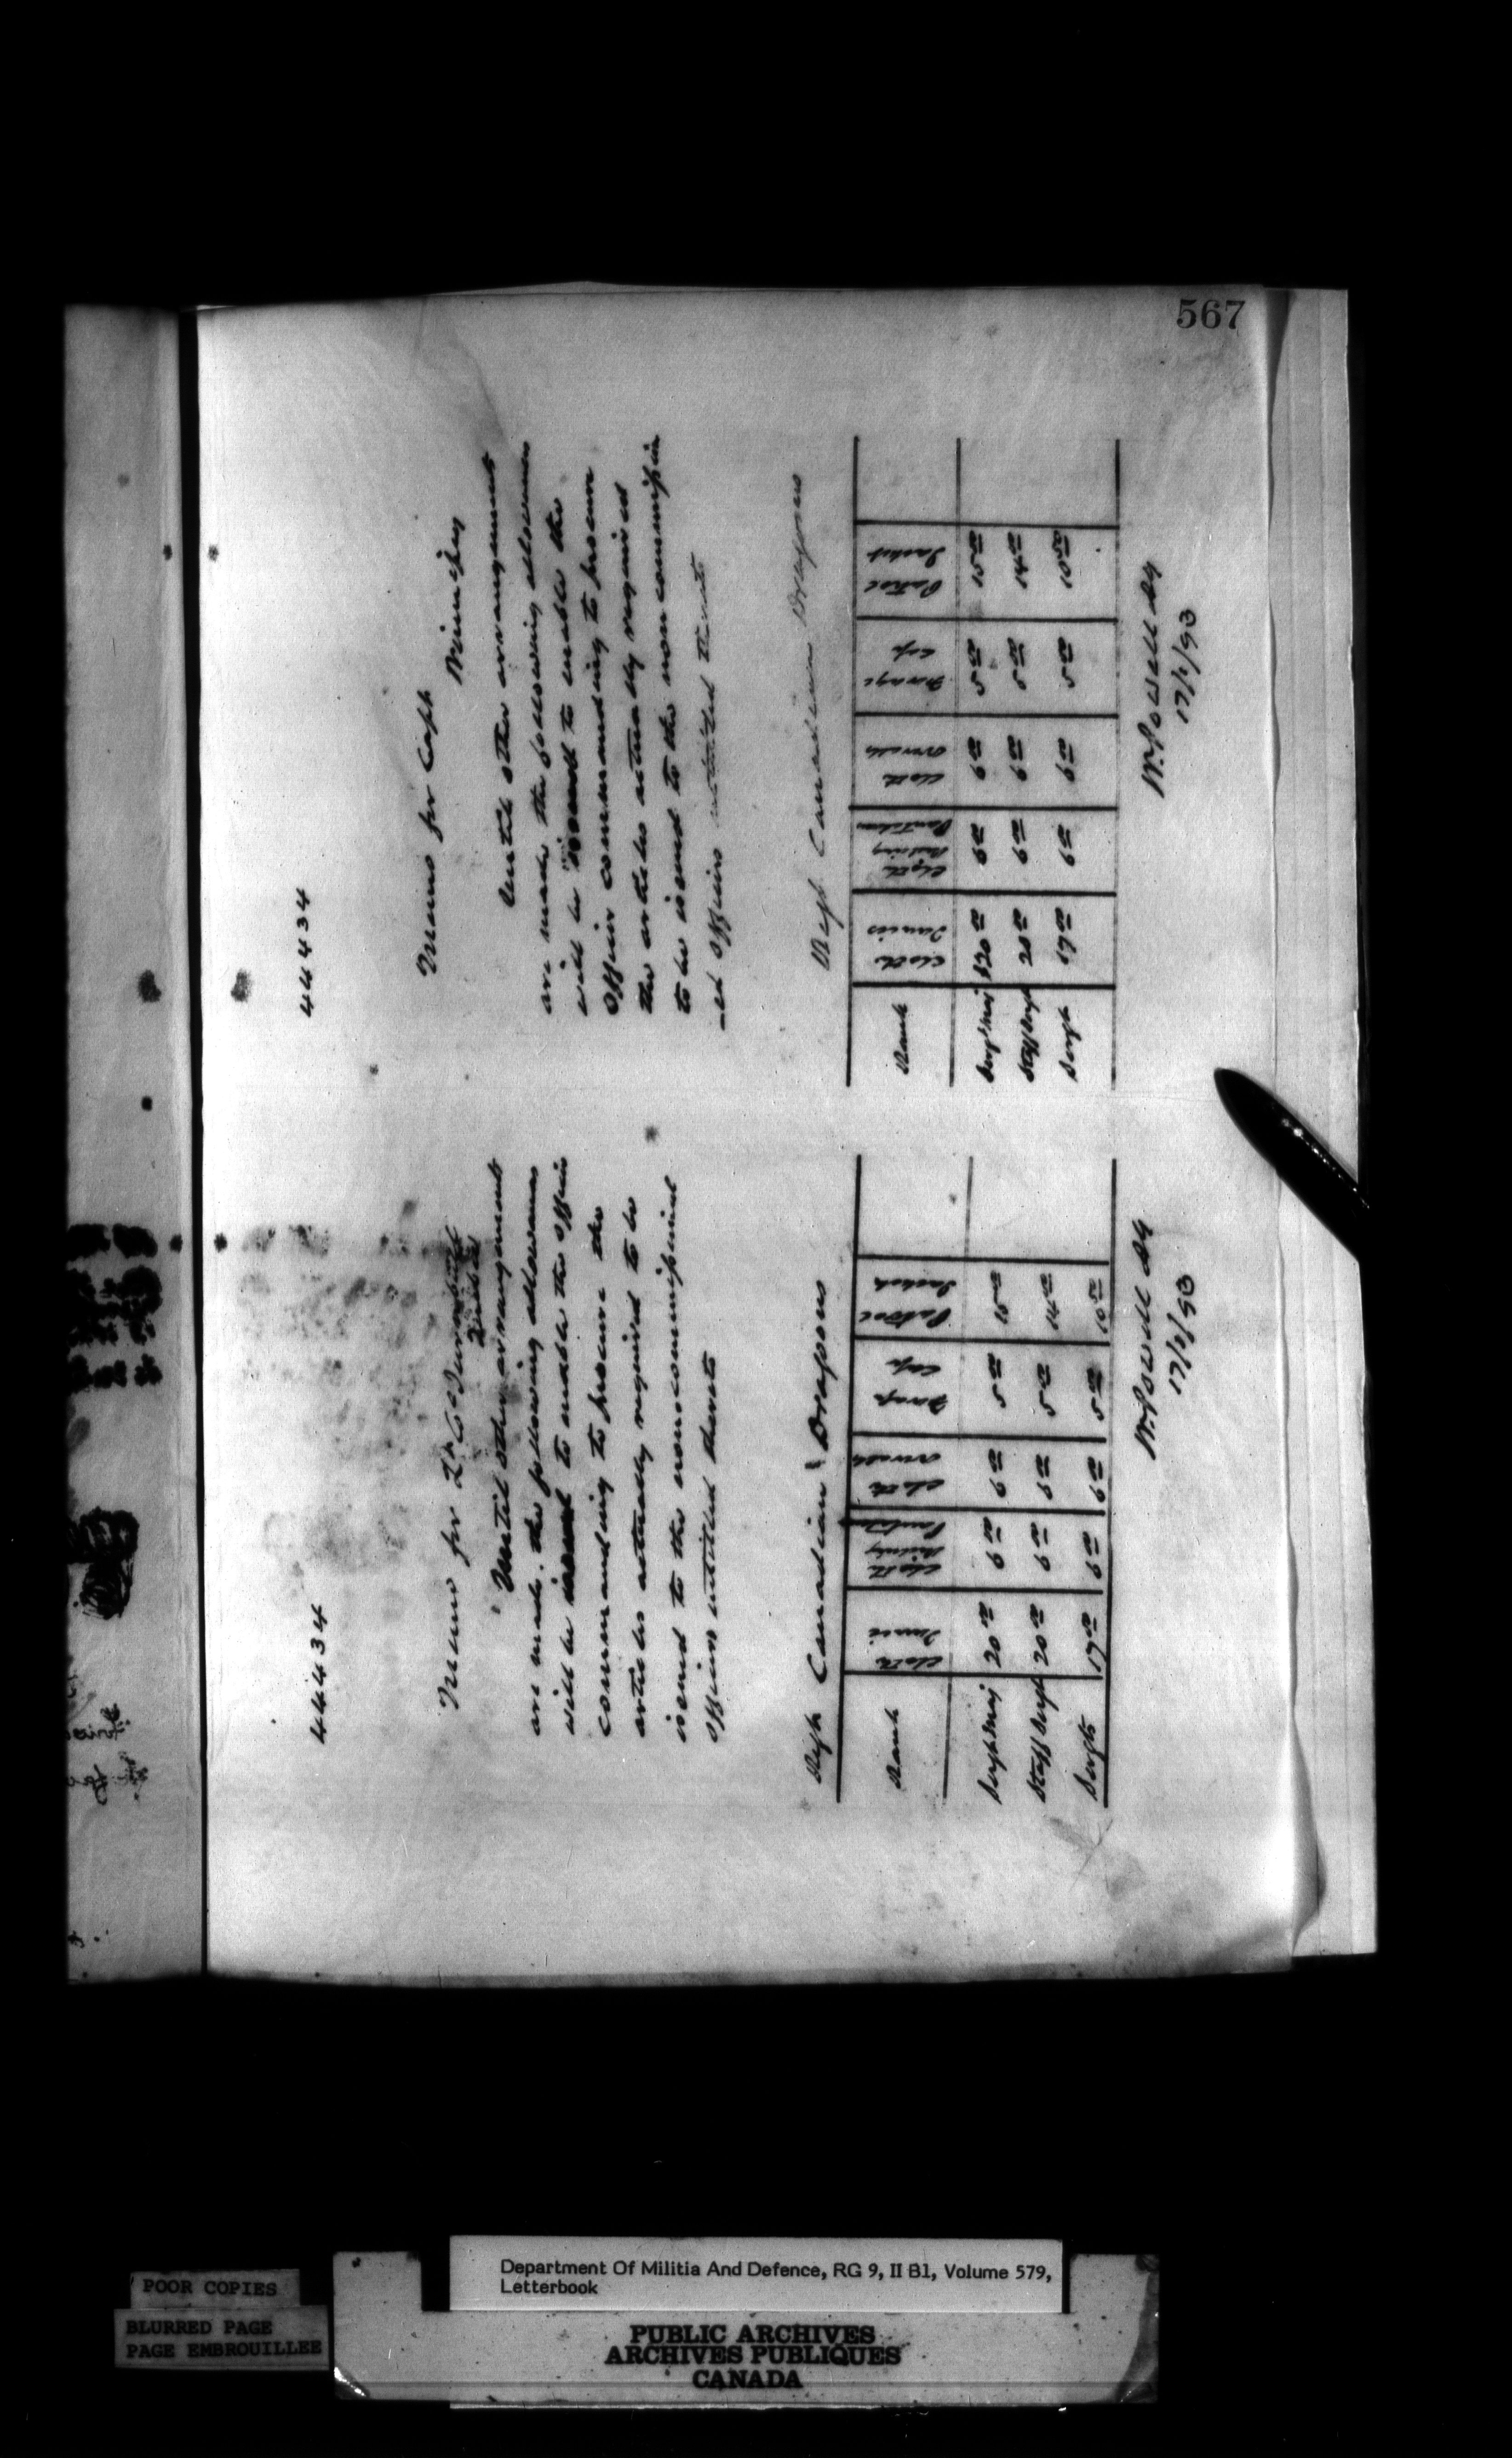 567
44434
Memo for Lt Col Turnbull
Quebec
Until other arrangements
are made the following allowances
will be issued to enable the officer
commanding to procure the
articles actually required to be
issued to the noncommissioned
officers entitled thereto
Regt Canadian Dragoons
Rank Cloth Tunic Cloth Riding Pantaloons Cloth Overalls Forage Cap Patrol Jacket
Sergt Maj 20 00 6 00 6 00 5 00 15 00
Staff Sergt 20 00 6 00 6 00 5 00 14 00
Sergts 17 00 6 00 6 00 5 00 10 00
W. Powell AG
17/1/93
44434
Memo for Capt
Winnipeg
Until other arrangements
are made the following allowances
will be issued to enable the
Officer commanding to procure
the articles actually required
to be issued to the noncommission
-ed officers entitled thereto
Regt Canadian Dragoons
Rank Cloth Tunics Cloth Riding Pantaloons Cloth Overalls Forage Cap Patrol Jacket
Sergt Maj $20 00 6 00 6 00 5 00 15 00
Staff Sergt 20 00 6 00 6 00 5 00 14 00
Sergt 17 00 6 00 6 00 5 00 10 00
W. Powell AG
17/1/93
POOR COPIES
BLURRED PAGE
PAGE EMBROUILLEE
Department Of Militia And Defence, RG 9, II B1, Volume 579,
Letterbook
PUBLIC ARCHIVES
ARCHIVES PUBLIQUES
CANADA